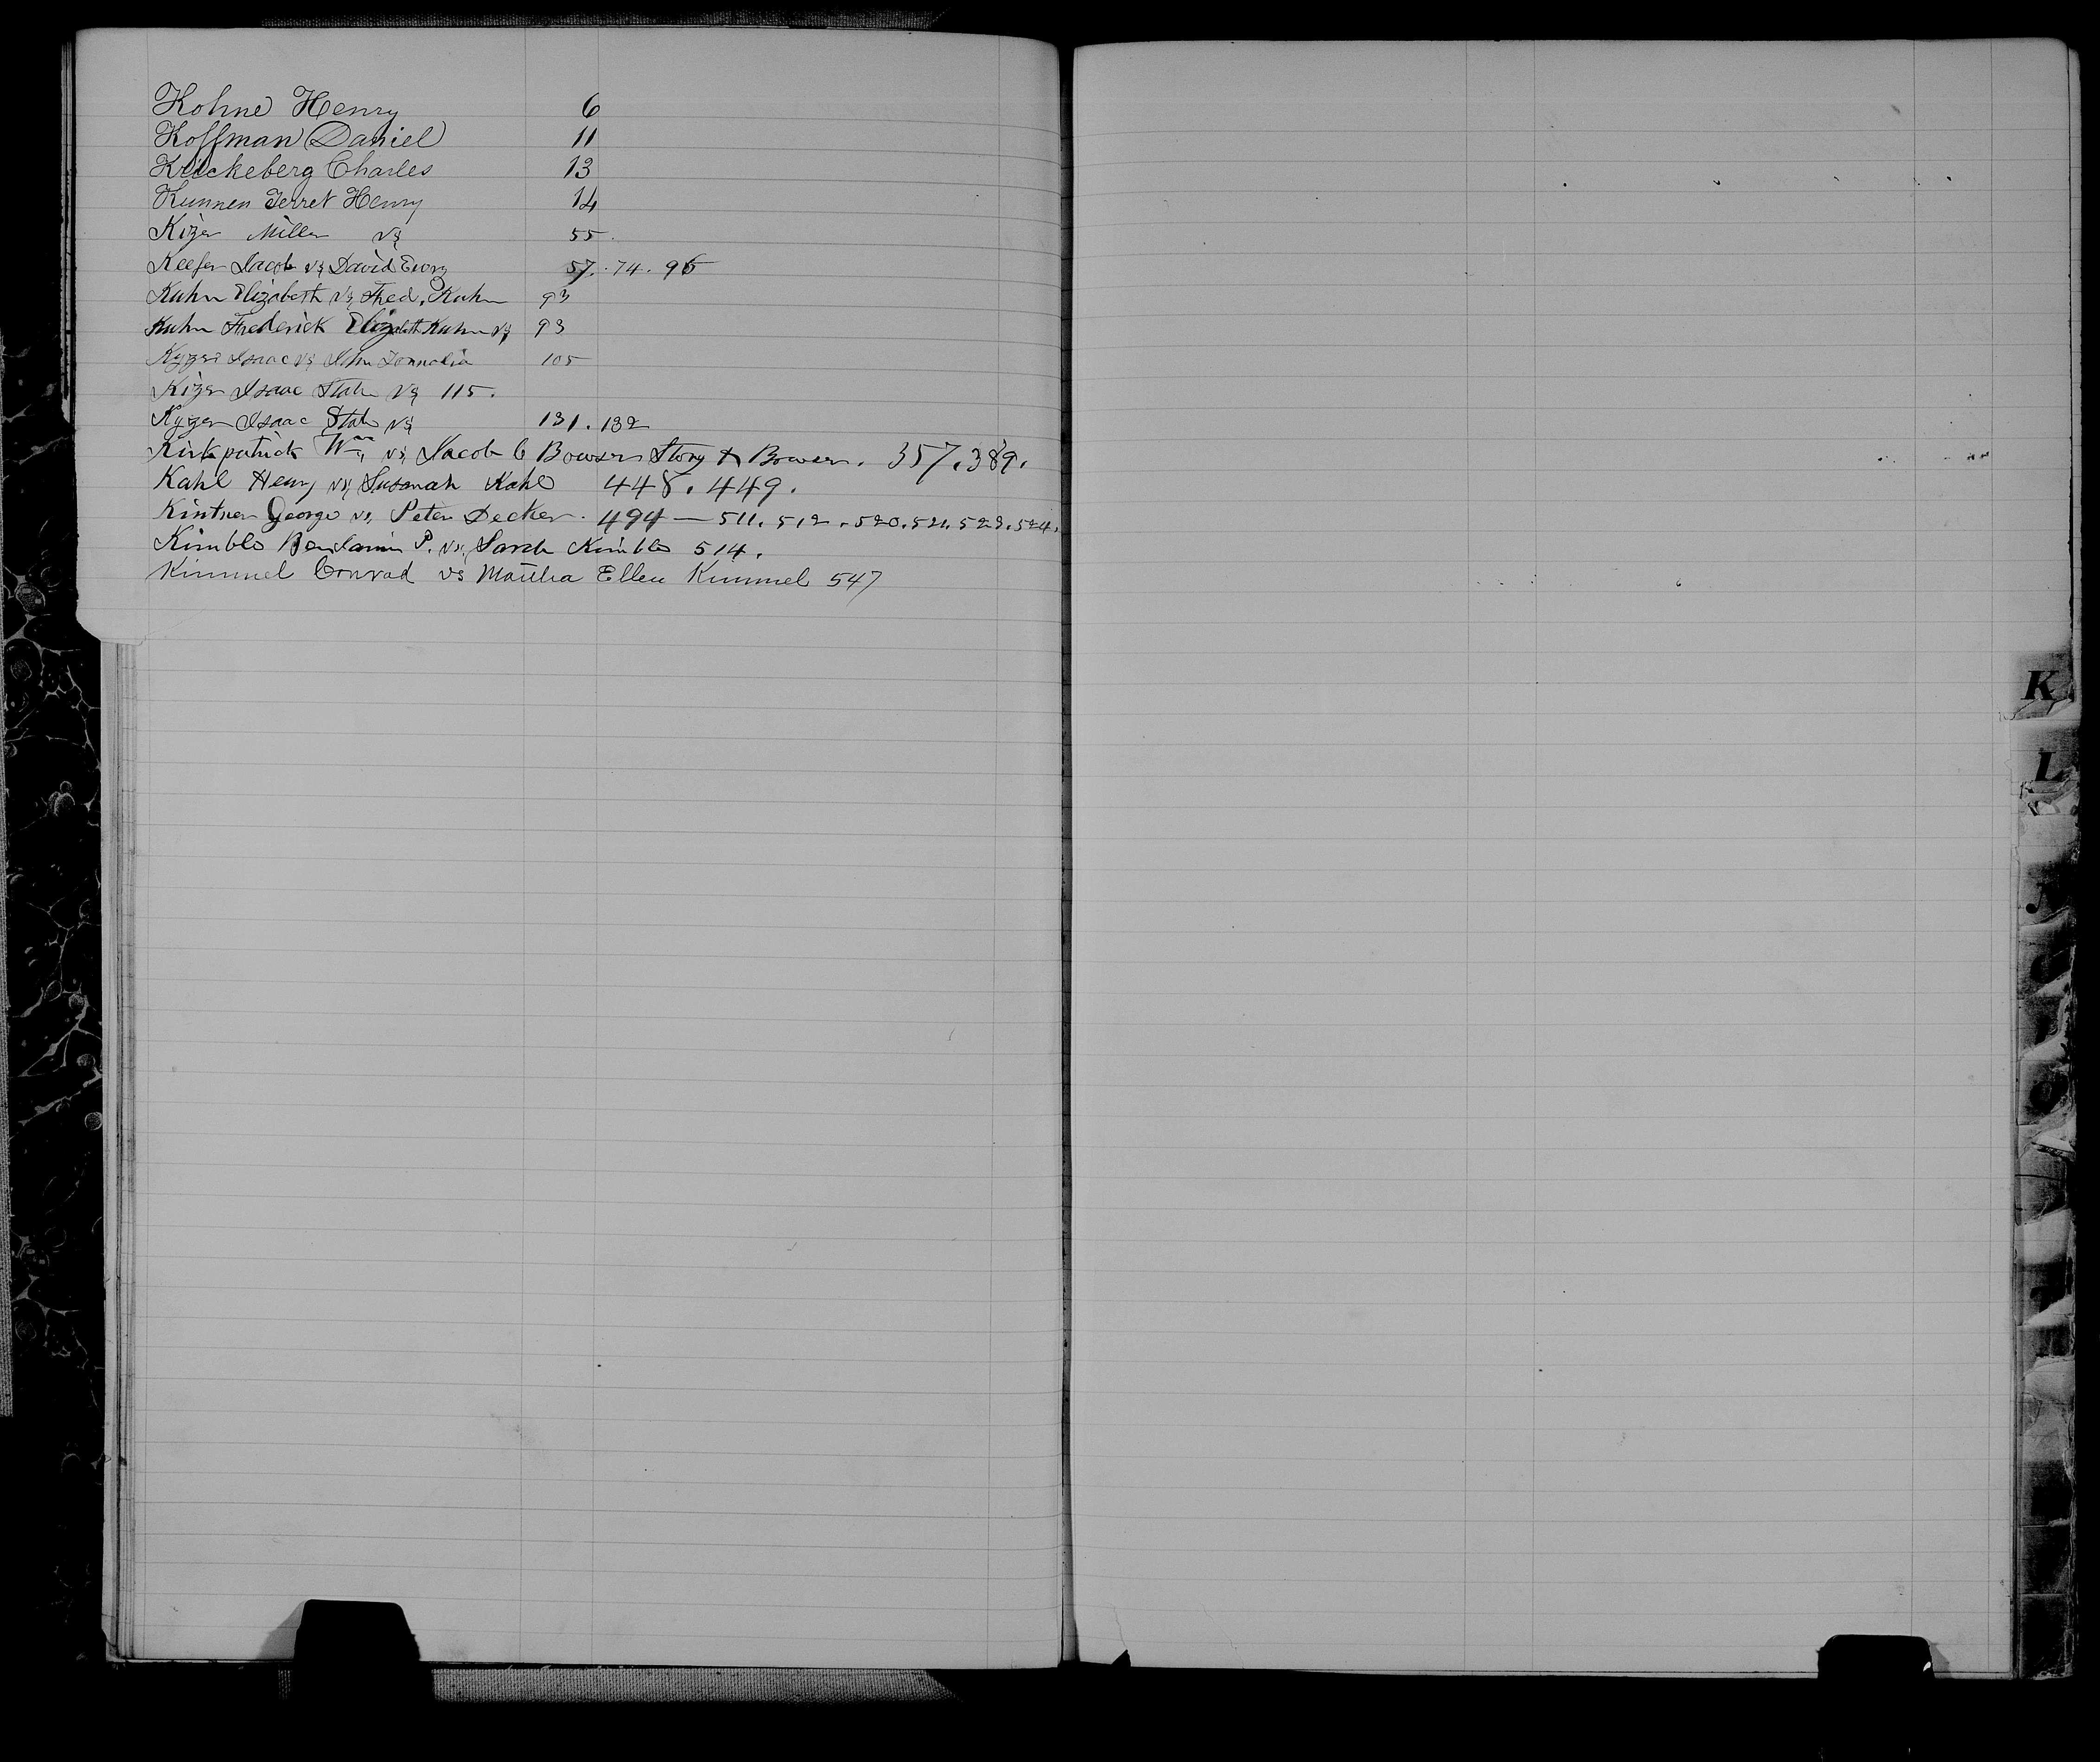 Kohne Henry 6
Koffman Daniel 11
Krickeberg Charles 13
Kunnen Jerret Henry 14
Kizer Miller vs 55.
Keefer Jacob vs David 57. 74. 95
Kuhn Elizabeth vs Fred. Kuhn 93
Kuhn Frederick Elizabeth Kuhn vs 93
Kyzer Isaac vs John 105
Kizer Isaac State vs 115.
Kyzer Isaac State vs 131. 132
Kirkpatrick Wm vs Jacob C Bowser Story & Bowser. 357. 389.
Kahl Henry vs Susanah Kahl 448. 449.
Kintner George vs Peter Decker. 494 — 511. 512. 520. 521. 523. 524.
Kimble Benjamin P. vs Sarah Kimble 514.
Kimmel Conrad vs Martha Ellen Kimmel 547
K
L